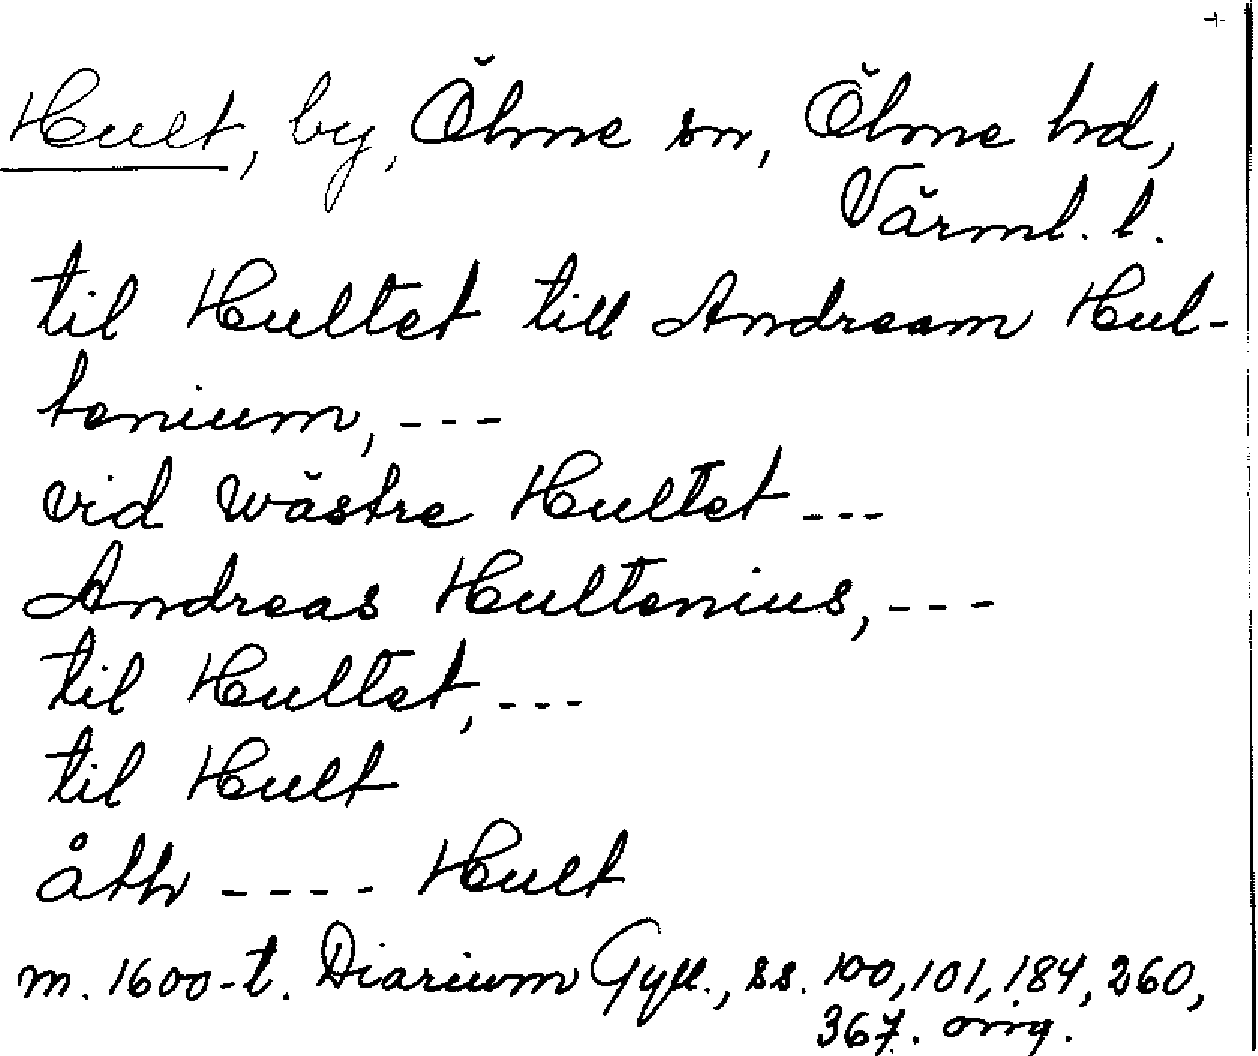 +
Hult, by, Ölme sn, Ölme hd,
Värml. l.
til Hultet till Andream Hul-
tenium, ---
vid wästre Hultet ---
Andreas Hultenius, ---
til Hultet, ---
til Hult
åth ---- Hult
m. 1600-t. Diarium Gyll., ss. 100, 101, 184, 260,
367. orig.